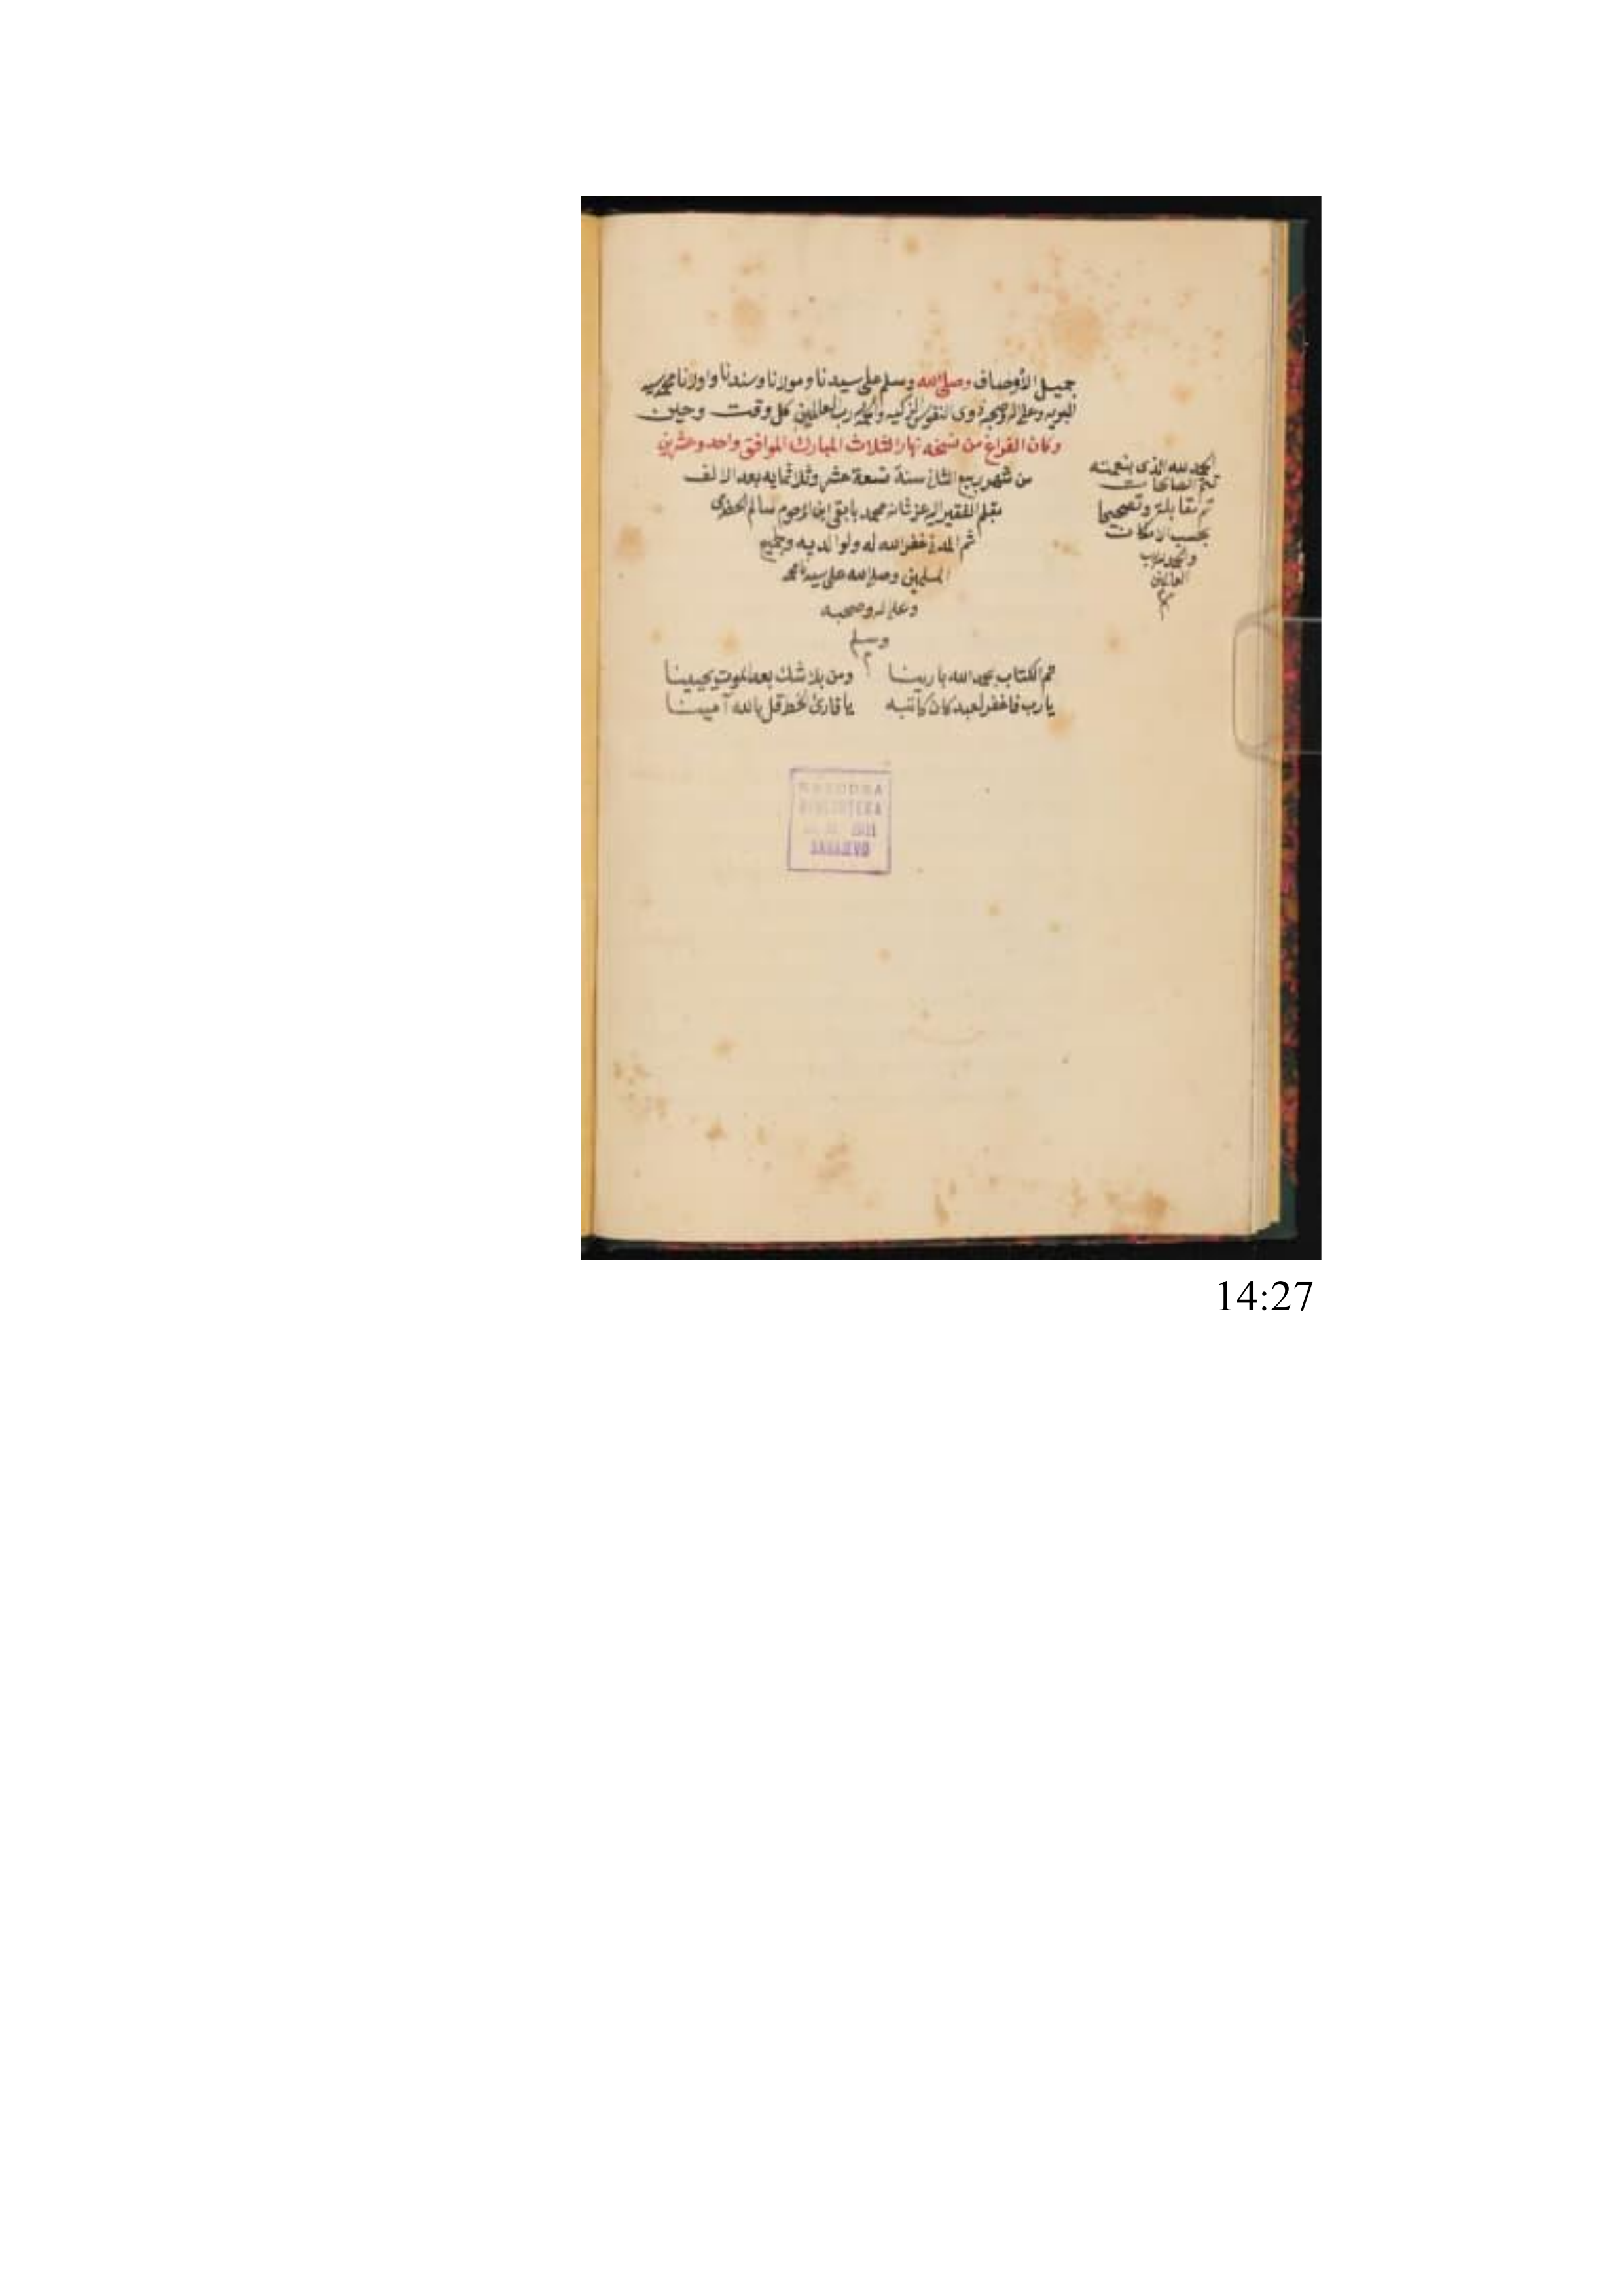 جميل الأوصاف وصلى الله وسلم على سيدنا ومولانا وسندنا واولانا محمد سيد
البريه وعلى اله وصحبه ذوى النفوس الزكيه والحمد لله رب العالمين كل وقت وحين
وكان الفراغ من نسخه نهار الثلاث المبارك الموافق واحد وعشرين
من شهر ربيع الثانى سنة تسعة عشر وثلاثمايه بعد الالف
بقلم الفقير اليه عز شانه محمد بابقى ابن المرحوم سالم الحضرى
ثم المدنى غفر الله له ولوالديه وجميع
المسلمين وصلى الله على سيدنا محمد
وعلى اله وصحبه
وسلم
تم الكتاب بحمد الله بارينا ومن بلا شك بعد الموت يحيينا
يا رب فاغفر لعبد كان كاتبه يا قارئ الخط قل بالله آمينا
الحمد لله الذى بنعمته
تتم الصالحات
تم مقابلة وتصحيحا
بحسب الامكان
والحمد لله رب
العالمين
NARODNA
BIBLIOTEKA
SARAJEVO
14:27